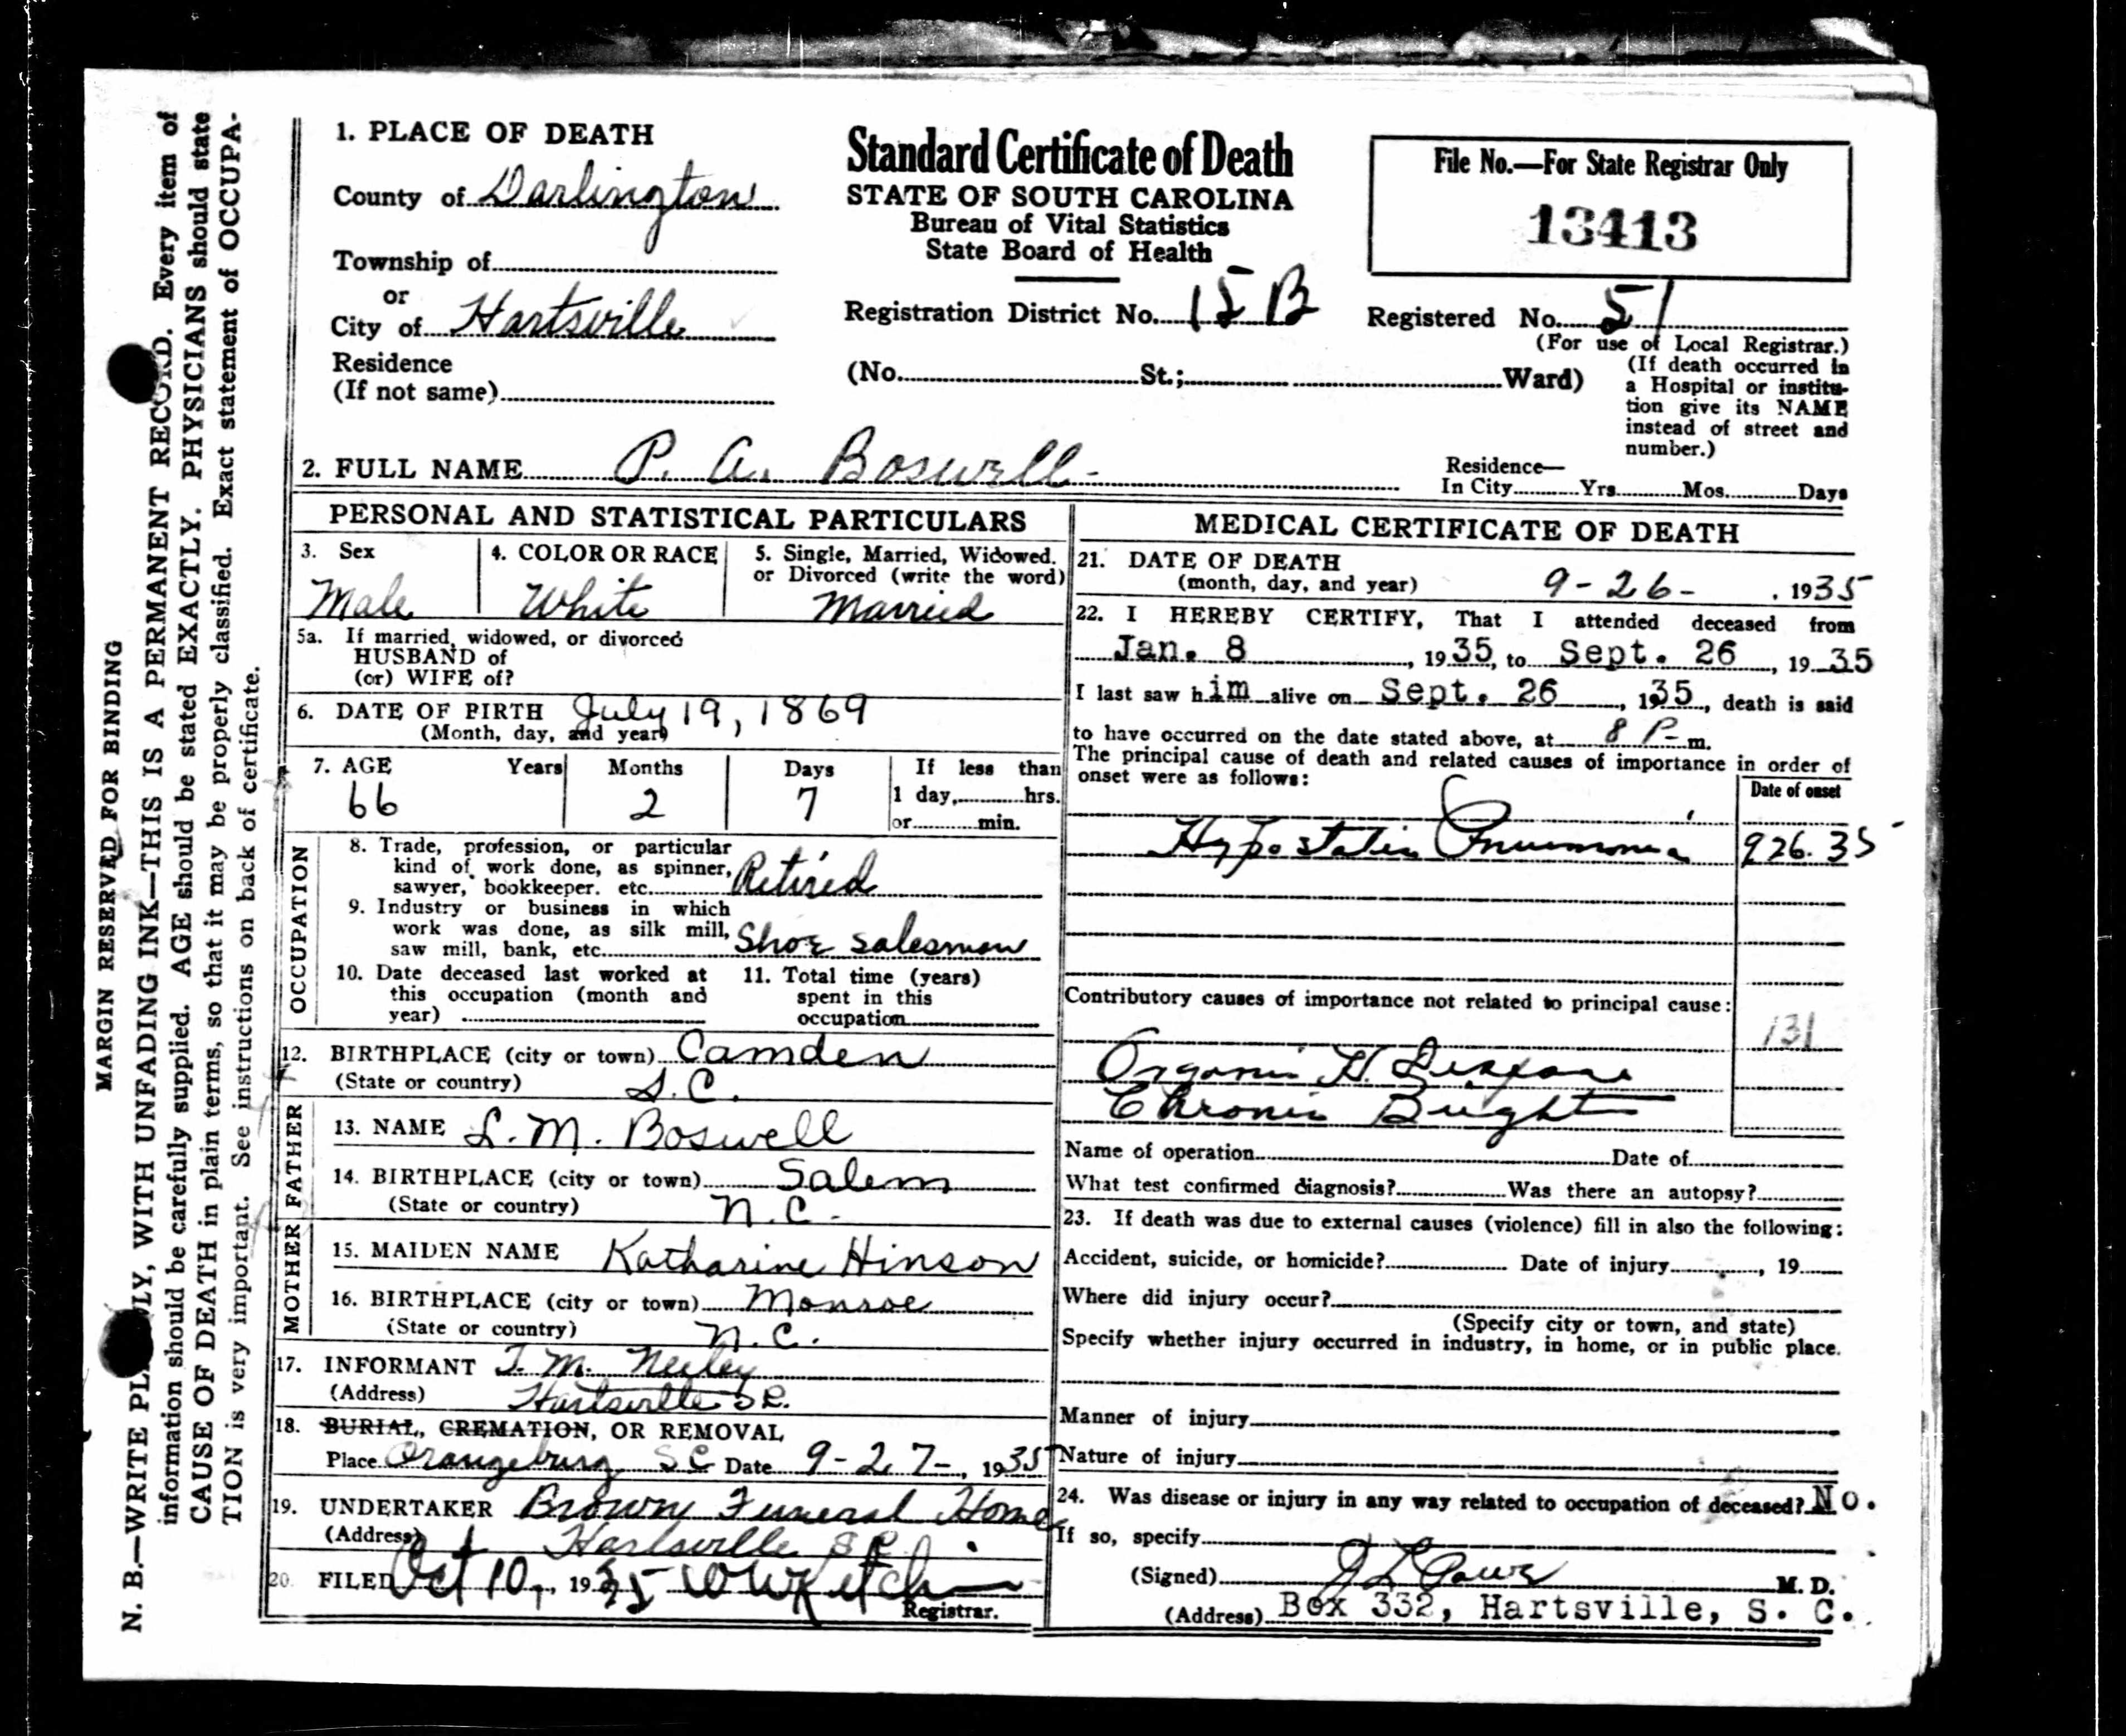 MARGIN RESERVED FOR BINDING
N. B.—WRITE PLAINLY, WITH UNFADING INK—THIS IS A PERMANENT RECORD. Every item of
information should be carefully supplied. AGE should be stated EXACTLY. PHYSICIANS should state
CAUSE OF DEATH in plain terms, so that it may be properly classified. Exact statement of OCCUPA-
TION is very important. See instructions on back of certificate.
1. PLACE OF DEATH
County of Darlington
Township of
or
City of Hartsville
Residence
(If not same)
Standard Certificate of Death
STATE OF SOUTH CAROLINA
Bureau of Vital Statistics
State Board of Health
Registration District No. 15 B
(No. St.; Ward)
File No.—For State Registrar Only
13413
Registered No. 51
(For use of Local Registrar.)
(If death occurred in
a Hospital or institu-
tion give its NAME
instead of street and
number.)
2. FULL NAME P. A. Boswell
Residence—
In City Yrs. Mos. Days
PERSONAL AND STATISTICAL PARTICULARS
3. Sex
Male
4. COLOR OR RACE
White
5. Single, Married, Widowed.
or Divorced (write the word)
Married
5a. If married, widowed, or divorced
HUSBAND of
(or) WIFE of?
6. DATE OF BIRTH July 19, 1869
(Month, day, and year)
7. AGE Years Months Days If less than
66 2 7 1 day, hrs.
or min.
OCCUPATION
8. Trade, profession, or particular
kind of work done, as spinner,
sawyer, bookkeeper. etc. Retired
9. Industry or business in which
work was done, as silk mill,
saw mill, bank, etc. Shoe Salesman
10. Date deceased last worked at
this occupation (month and
year)
11. Total time (years)
spent in this
occupation
12. BIRTHPLACE (city or town) Camden
(State or country) S.C.
FATHER
13. NAME L. M. Boswell
14. BIRTHPLACE (city or town) Salem
(State or country) N.C.
MOTHER
15. MAIDEN NAME Katharine Hinson
16. BIRTHPLACE (city or town) Monroe
(State or country) N.C.
17. INFORMANT T. M. Neeley
(Address) Hartsville S.C.
18. BURIAL, CREMATION, OR REMOVAL
Place Orangeburg SC Date 9-27-, 1935
19. UNDERTAKER Brown Funeral Home
(Address) Hartsville S.C.
20. FILED Oct 10, 1935
Registrar.
MEDICAL CERTIFICATE OF DEATH
21. DATE OF DEATH
(month, day, and year) 9-26-, 1935
22. I HEREBY CERTIFY, That I attended deceased from
Jan. 8, 1935, to Sept. 26, 1935
I last saw him alive on Sept. 26, 1935, death is said
to have occurred on the date stated above, at 8 P-m.
The principal cause of death and related causes of importance in order of
onset were as follows:
Date of onset
Hypostatic Pneumonia 926.35
Contributory causes of importance not related to principal cause:
131
Organic H. Disease
Chronic Brights
Name of operation Date of
What test confirmed diagnosis? Was there an autopsy?
23. If death was due to external causes (violence) fill in also the following:
Accident, suicide, or homicide? Date of injury, 19
Where did injury occur?
(Specify city or town, and state)
Specify whether injury occurred in industry, in home, or in public place.
Manner of injury
Nature of injury
24. Was disease or injury in any way related to occupation of deceased? No.
If so, specify
(Signed) M. D.
(Address) Box 332, Hartsville, S. C.